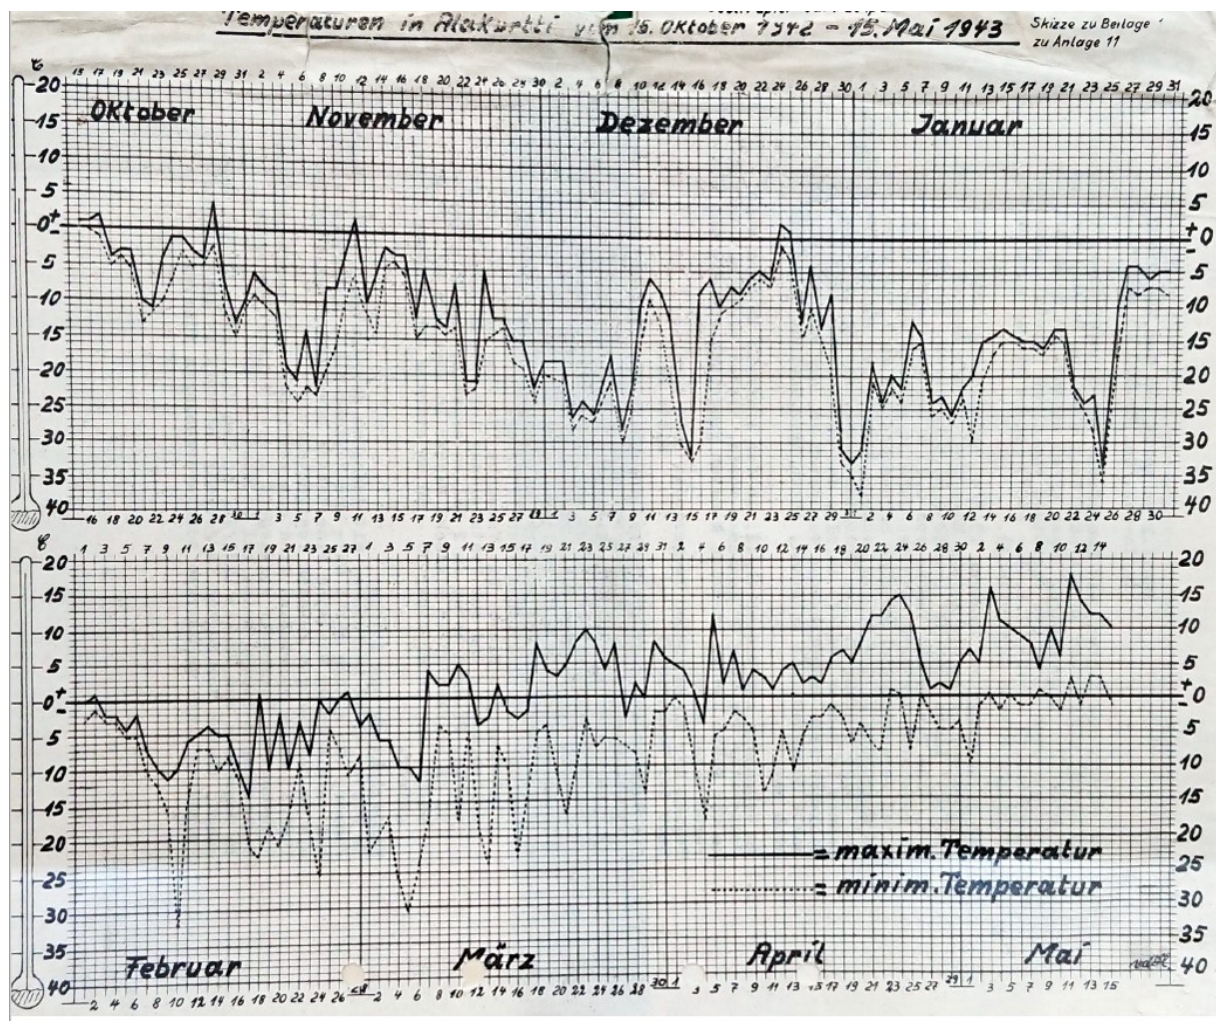 Temperaturen in Alakurtti vom 15. Oktober 1942 – 15. Mai 1943
Skizze zu Beilage
zu Anlage 11
°C
15 17 19 21 23 25 27 29 31 2 4 6 8 10 12 14 16 18 20 22 24 26 28 30 2 4 6 8 10 12 14 16 18 20 22 24 26 28 30 1 3 5 7 9 11 13 15 17 19 21 23 25 27 29 31
20 20
Oktober November Dezember Januar
15 15
10 10
5 5
0 + + 0
-
5 5
10 10
15 15
20 20
25 25
30 30
35 35
40 40
16 18 20 22 24 26 28 30 1 3 5 7 9 11 13 15 17 19 21 23 25 27 29 1 3 5 7 9 11 13 15 17 19 21 23 25 27 29 31 2 4 6 8 10 12 14 16 18 20 22 24 26 28 30
°C
1 3 5 7 9 11 13 15 17 19 21 23 25 27 1 3 5 7 9 11 13 15 17 19 21 23 25 27 29 31 2 4 6 8 10 12 14 16 18 20 22 24 26 28 30 2 4 6 8 10 12 14
20 20
15 15
10 10
5 5
0 + + 0
- -
5 5
10 10
15 15
20 20
= maxim. Temperatur
25 25
= minim. Temperatur
30 30
35 35
Februar März April Mai
40 40
2 4 6 8 10 12 14 16 18 20 22 24 26 28 2 4 6 8 10 12 14 16 18 20 22 24 26 28 30 1 3 5 7 9 11 13 15 17 19 21 23 25 27 29 1 3 5 7 9 11 13 15